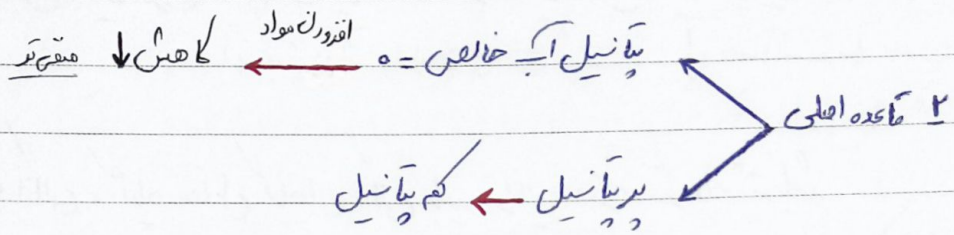 ۲ قاعده اصلی
پتانسیل آب خالص = ۰ ← افزودن مواد کاهش ↓ منفی تر
پر پتانسیل ← کم پتانسیل